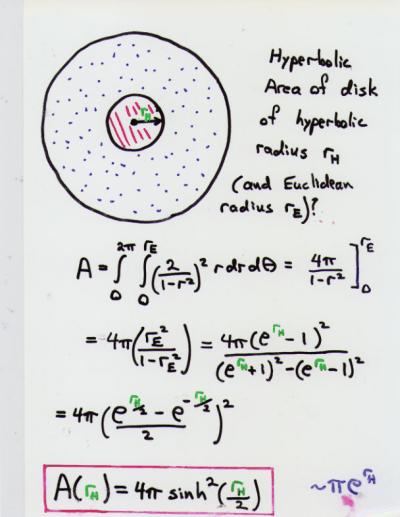 r_H
Hyperbolic
Area of disk
of hyperbolic
radius r_H
(and Euclidean
radius r_E)?
A = ∫_0^{2π} ∫_0^{r_E} (2/(1-r²))² r dr dθ = 4π/(1-r²) ]_0^{r_E}
= 4π(r_E²/(1-r_E²)) = 4π(e^{r_H}-1)²/((e^{r_H}+1)²-(e^{r_H}-1)²)
= 4π((e^{r_H/2} - e^{-r_H/2})/2)²
A(r_H) = 4π sinh²(r_H/2) ~πe^{r_H}